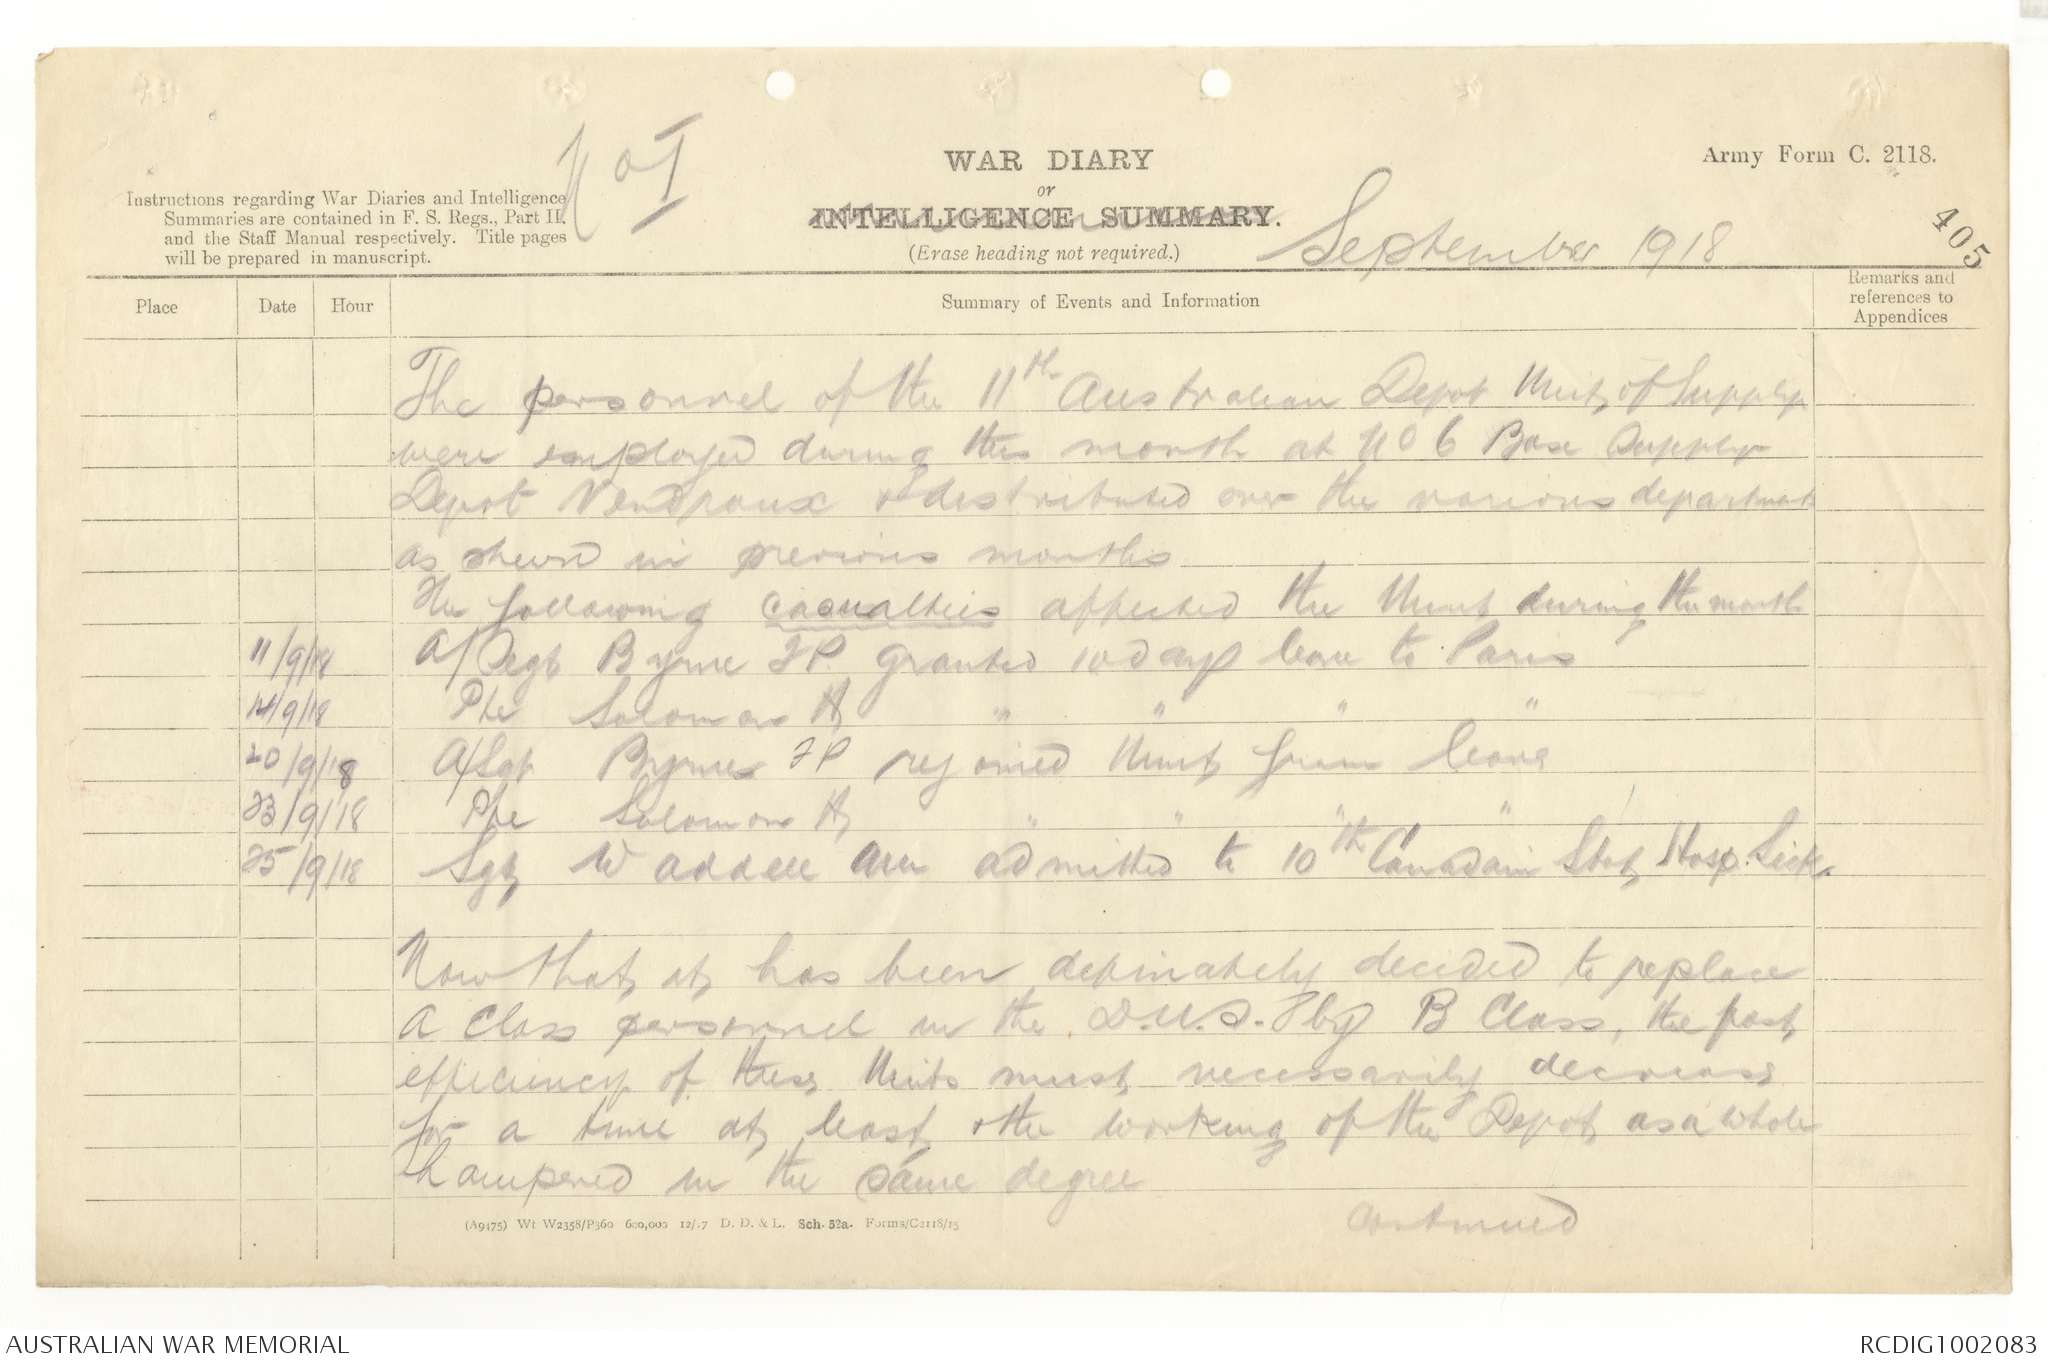 No I
WAR DIARY
or
INTELLIGENCE SUMMARY.
(Erase heading not required.)
Army Form C. 2118.
Instructions regarding War Diaries and Intelligence
Summaries are contained in F. S. Regs., Part II.
and the Staff Manual respectively. Title pages
will be prepared in manuscript.
September 1918
405
Place Date Hour Summary of Events and Information Remarks and references to Appendices
The personnel of the 11th Australian Depot Unit of Supply
were employed during the month at No 6 Base Supply
Depot Vendroux & distributed over the various departments
as shewn in previous months
The following casualties affected the Unit during the month
11/9/18 A/Sgt Byrne FP. granted 10 days leave to Paris
14/9/18 Pte Solomon A " " " "
20/9/18 A/Sgt Byrnes FP rejoined Unit from leave
23/9/18 Pte Solomon A " " " "
25/9/18 Sgt Waddell admitted to 10th Canadain Stat Hosp. Sick.
Now that it has been definately decided to replace
A Class personnel in the D.U.S. by B Class, the past
efficiency of these Units must necessarily decrease
for a time at least & the working of the Depot as a whole
hampered in the same degree
Continued
(A9475) Wt W2358/P360 600,000 12/17 D. D. & L. Sch. 52a. Forms/C2118/15
AUSTRALIAN WAR MEMORIAL
RCDIG1002083